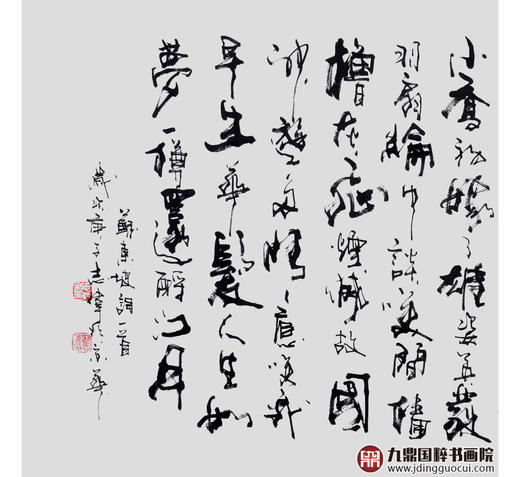 小喬初嫁了雄姿英發
羽扇綸巾談笑間檣
櫓灰飛煙滅故國
神遊多情應笑我
早生華髮人生如
夢一樽還酹江月
蘇東坡詞一首
歲次庚子志偉於京華
九鼎国粹书画院
www.jdingguocui.com